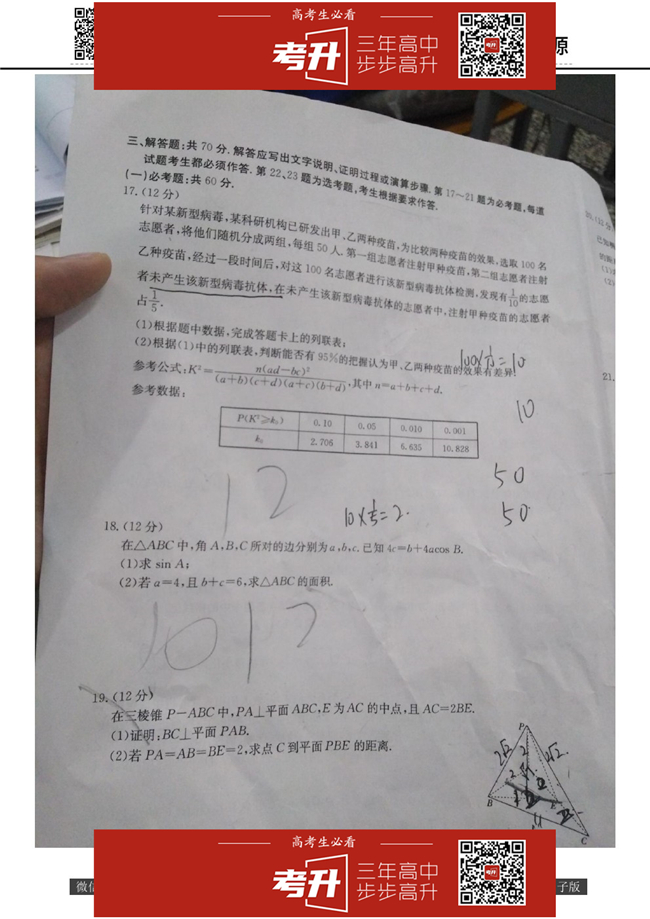 高考生必看
考升
三年高中
步步高升
源
三、解答题:共 70 分.解答应写出文字说明、证明过程或演算步骤.第 17~21 题为必考题,每道
试题考生都必须作答.第 22、23 题为选考题,考生根据要求作答.
(一)必考题:共 60 分.
17.(12 分)
针对某新型病毒,某科研机构已研发出甲、乙两种疫苗,为比较两种疫苗的效果,选取 100 名
志愿者,将他们随机分成两组,每组 50 人.第一组志愿者注射甲种疫苗,第二组志愿者注射
乙种疫苗,经过一段时间后,对这 100 名志愿者进行该新型病毒抗体检测,发现有 1/10 的志愿
者未产生该新型病毒抗体,在未产生该新型病毒抗体的志愿者中,注射甲种疫苗的志愿者
占 1/5.
(1)根据题中数据,完成答题卡上的列联表;
(2)根据(1)中的列联表,判断能否有 95%的把握认为甲、乙两种疫苗的效果有差异.
参考公式:K²=n(ad-bc)²/((a+b)(c+d)(a+c)(b+d)),其中 n=a+b+c+d.
参考数据:
P(K²≥k₀) 0.10 0.05 0.010 0.001
k₀ 2.706 3.841 6.635 10.828
10
50
50
12
10×1/5=2.
18.(12 分)
在△ABC 中,角 A,B,C 所对的边分别为 a,b,c.已知 4c=b+4acos B.
(1)求 sin A;
(2)若 a=4,且 b+c=6,求△ABC 的面积.
19.(12 分)
在三棱锥 P-ABC 中,PA⊥平面 ABC,E 为 AC 的中点,且 AC=2BE.
(1)证明:BC⊥平面 PAB.
(2)若 PA=AB=BE=2,求点 C 到平面 PBE 的距离.
P
2√2
2
2√2.
2
B
E
C
20.(12 分)
21.
高考生必看
考升
三年高中
步步高升
微信
子版